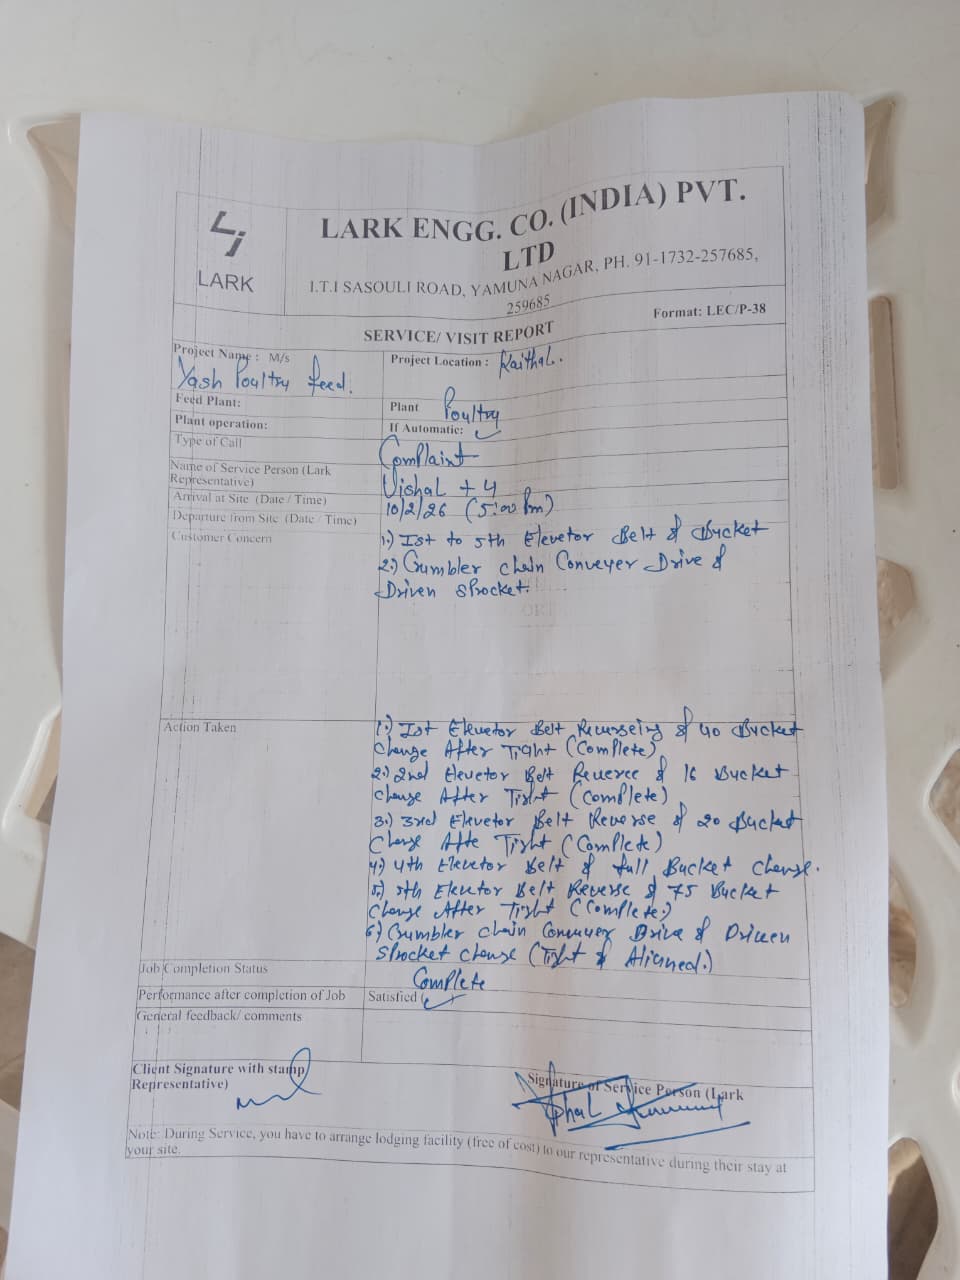 LARK
LARK ENGG. CO. (INDIA) PVT.
LTD
I.T.I SASOULI ROAD, YAMUNA NAGAR, PH. 91-1732-257685,
259685
SERVICE/ VISIT REPORT
Format: LEC/P-38
Project Name : M/s
Yash Poultry feed.
Project Location : Kaithal.
Feed Plant:
Plant Poultry
Plant operation:
If Automatic: ✓
Type of Call
Complaint
Name of Service Person (Lark
Representative)
Vishal + 4
Arrival at Site (Date / Time)
10/2/26 (5:00 Pm)
Departure from Site (Date / Time)
Customer Concern
1.) Ist to 5th Elevetor Belt & Bucket
2.) Crumbler chain Conveyer Drive &
Driven Sprocket.
Action Taken
1.) Ist Elevetor Belt Reverseing & 40 Bucket
Change After Tight (Complete)
2.) 2nd Elevetor Belt Reverce & 16 Bucket
Change After Tight (Complete)
3.) 3rd Elevetor Belt Reverse & 20 Bucket
Change Afte Tight (Complete)
4.) 4th Elevetor Belt & full Bucket Change.
5.) 5th Elevetor Belt Reverse & 75 Bucket
Change After Tight (Complete.)
6.) Crumbler chain Conveyer Drive & Driven
Sprocket change (Tight & Alignned.)
Job Completion Status
Complete
Performance after completion of Job
Satisfied ✓
General feedback/ comments
Client Signature with stamp
Representative)
Signature of Service Person (Lark
Vishal
Note: During Service, you have to arrange lodging facility (free of cost) to our representative during their stay at
your site.